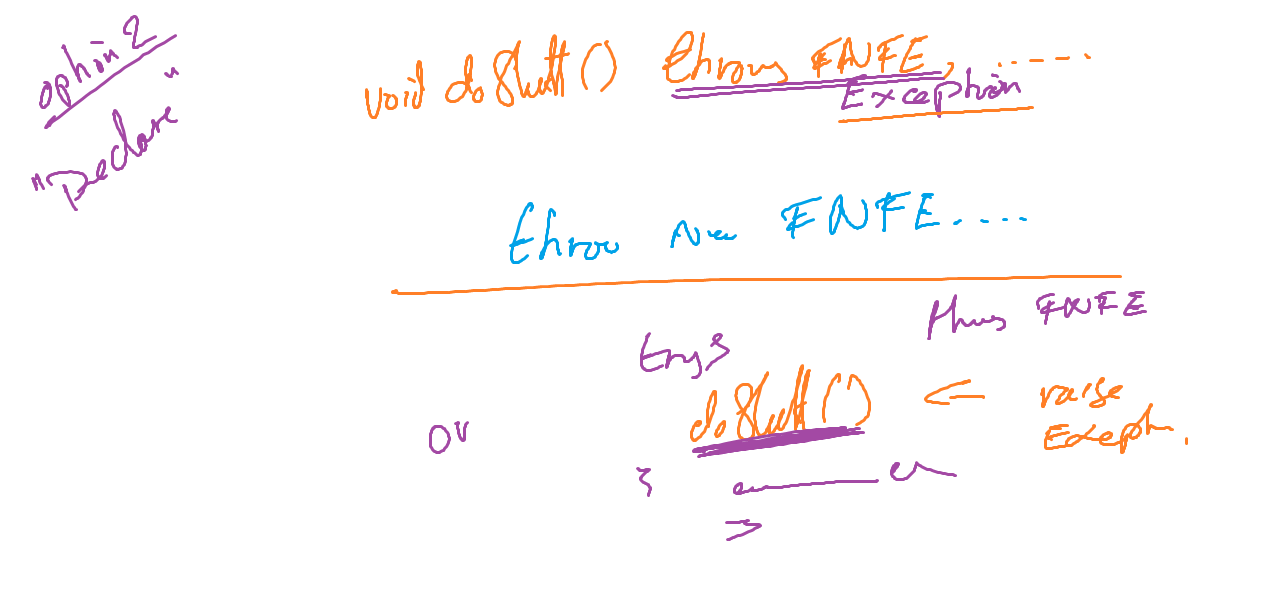 option 2
"Declare"
void doStuff() throws FNFE, ......
Exception
throw new FNFE....
throws FNFE
try {
doStuff() ← raise
Exceptn.
or
}